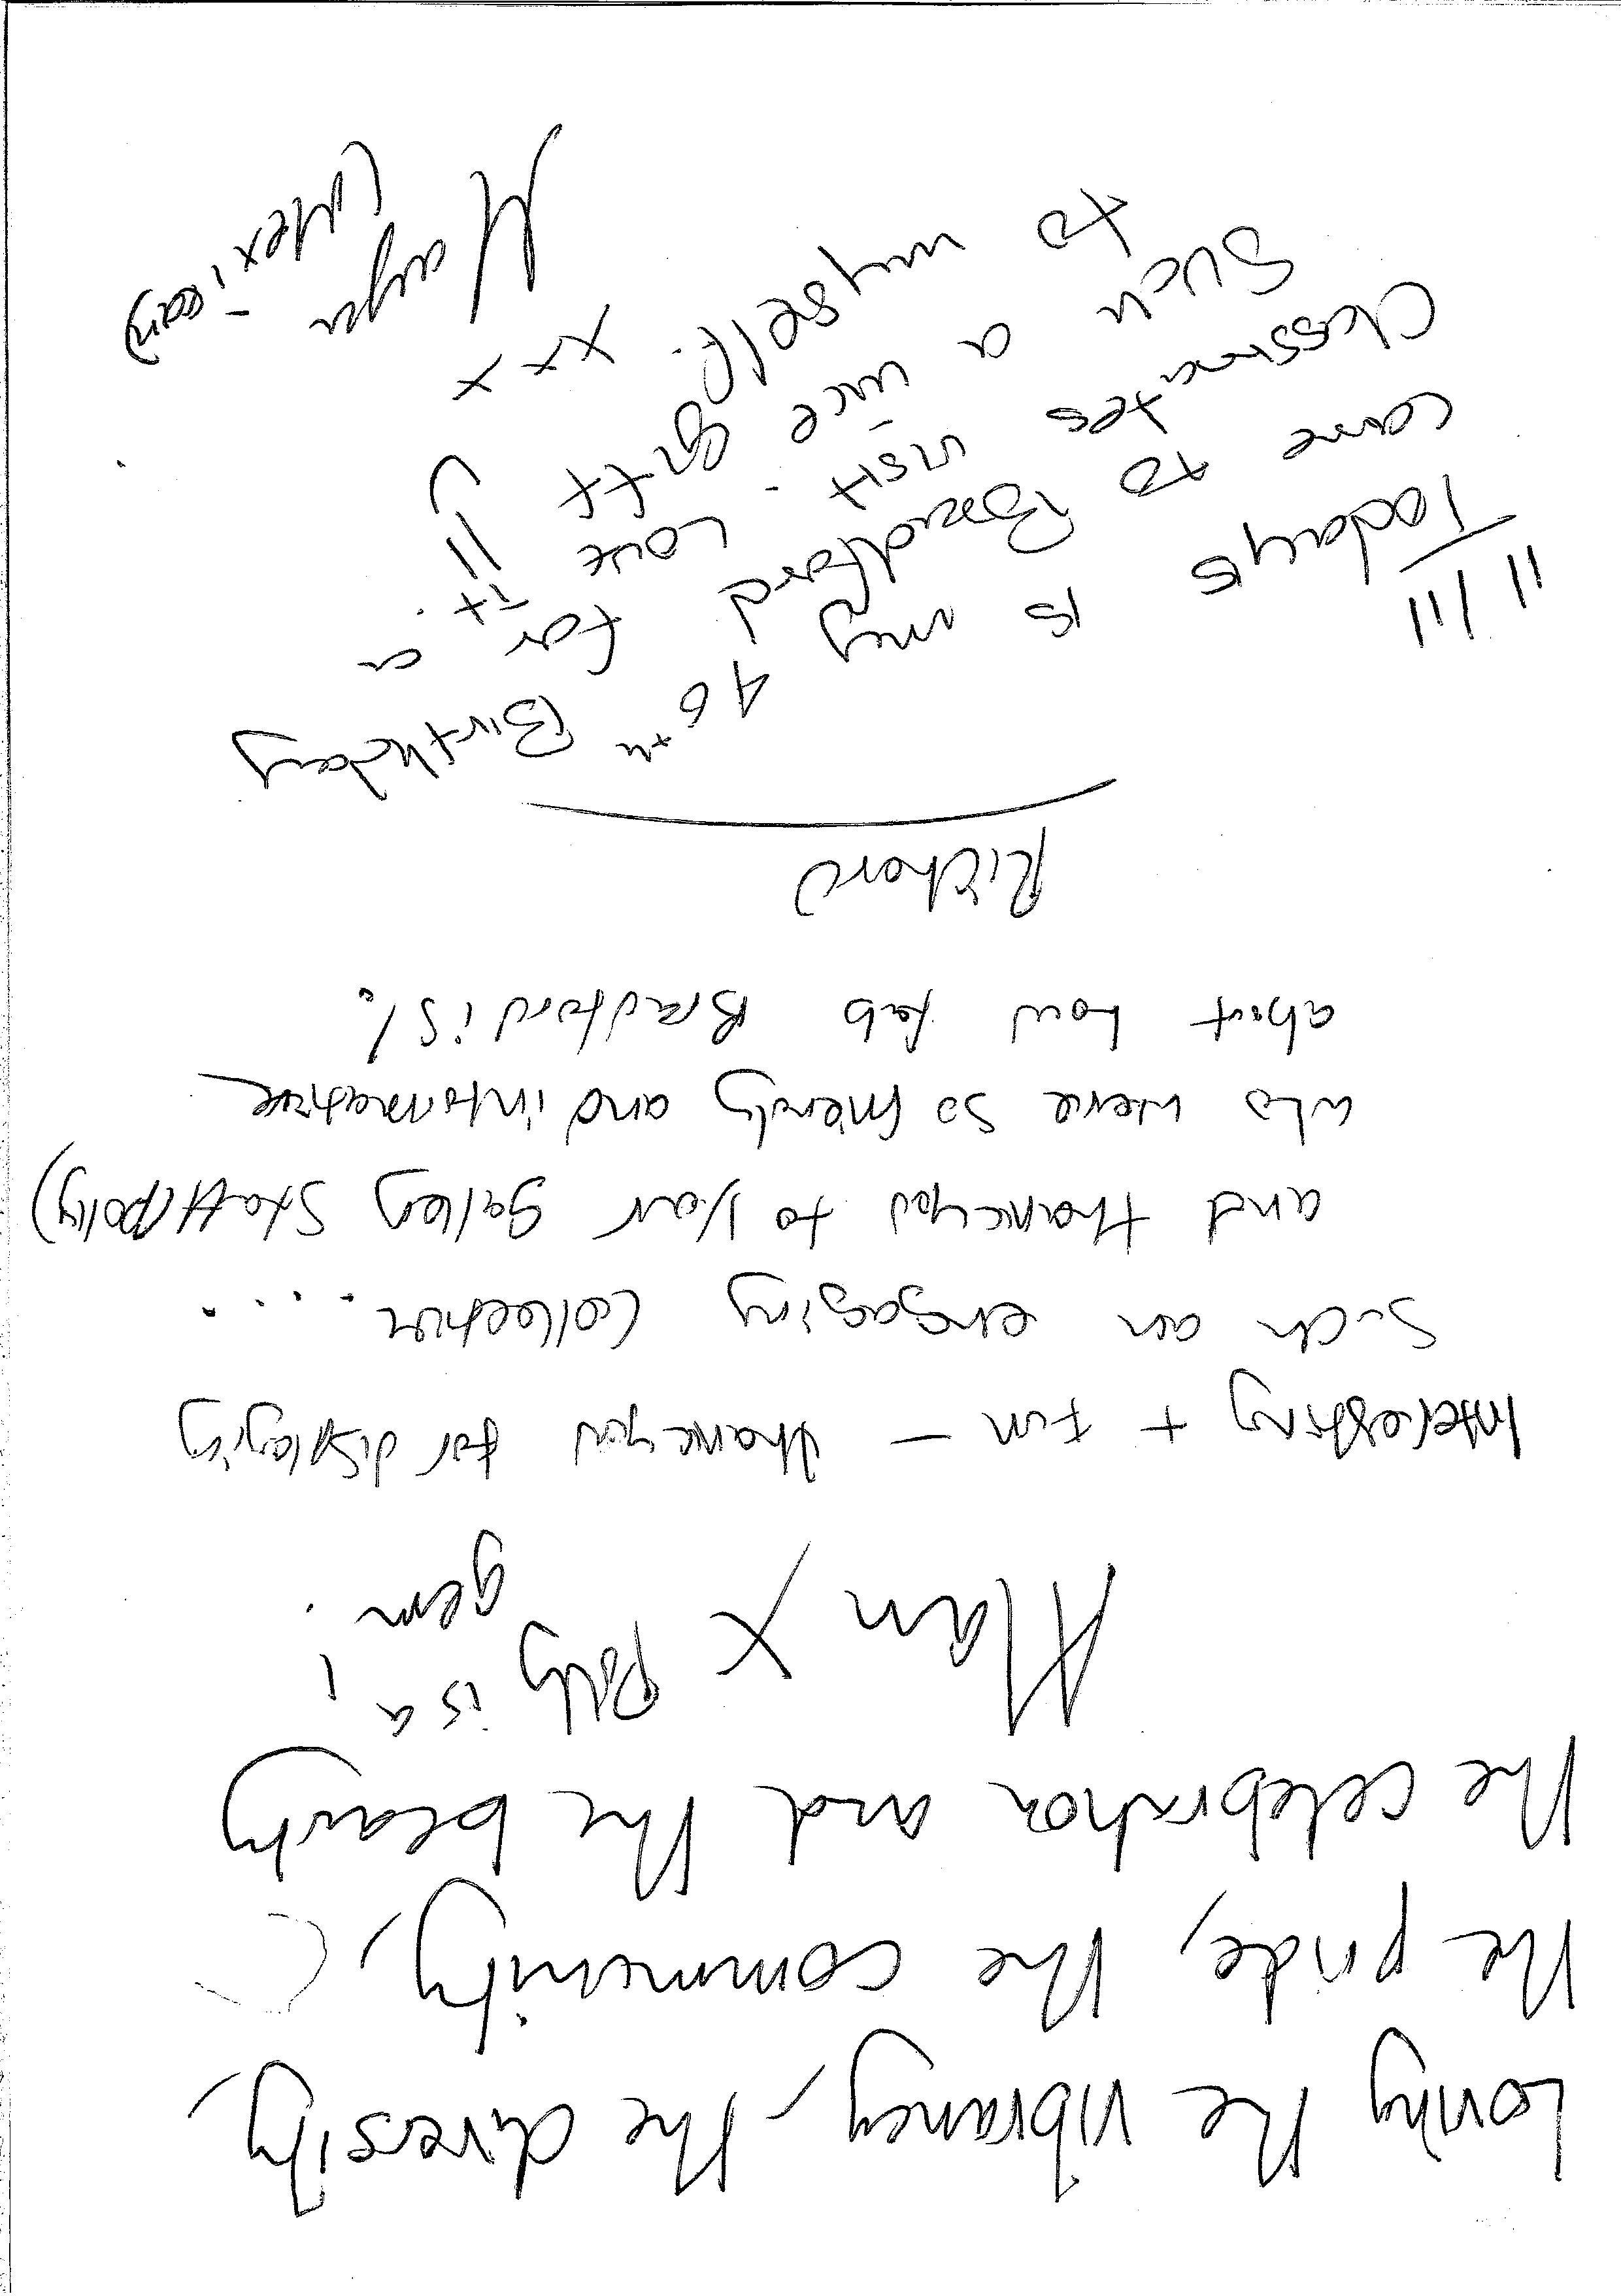 Loving the vibrancy, the diversity,
the pride, the community,
the celebration and the beauty
Alan x
Polly is a
gem!
Interesting + Fun — thankyou for displaying
such an engaging collection ....
and thankyou to your gallery staff (polly)
who were so friendly and informative
about how fab Bradford is!.
Richard
11/11
Todays is my 46th Birthday
came to Bradford for a
Classmates visit. Love It.
Such a nice gift !!
to myself. xxx
(Mexican)